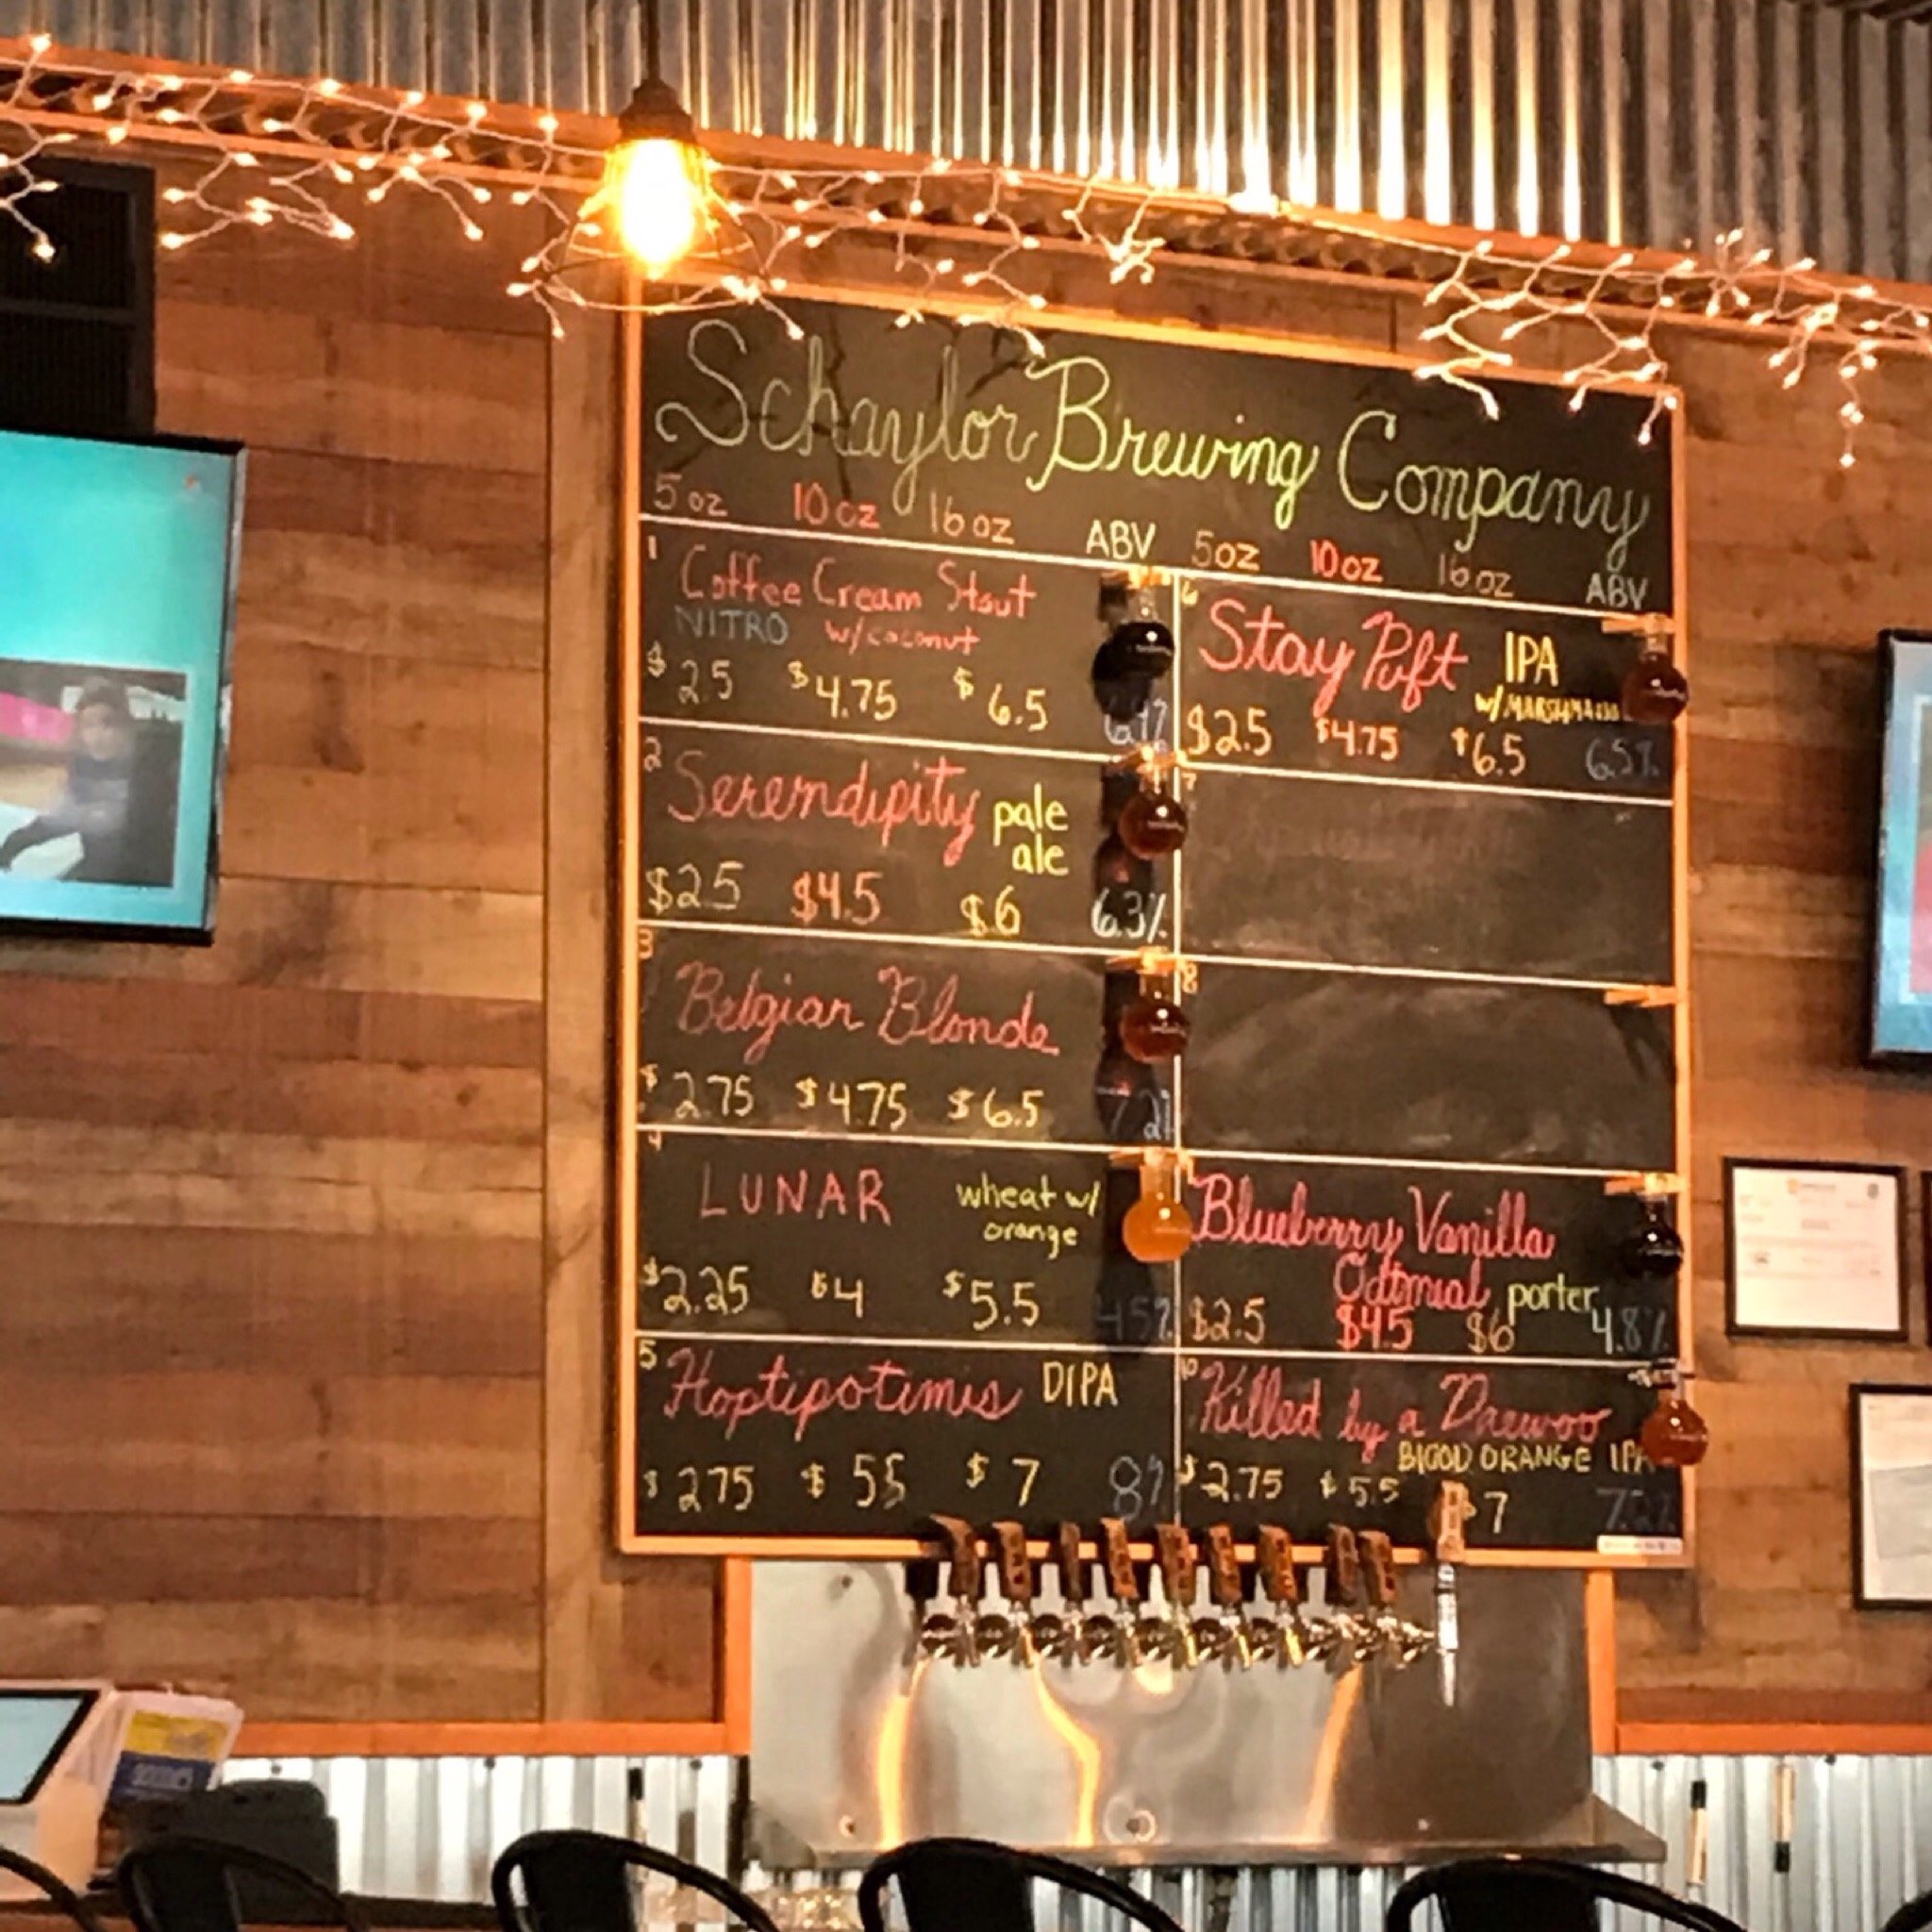 Schaylor Brewing Company
5oz 10oz 16oz ABV 5oz 10oz 16oz ABV
1 Coffee Cream Stout
NITRO w/coconut
$2.5 $4.75 $6.5
2 Serendipity pale
ale
$2.5 $4.5 $6 6.3%
3 Belgian Blonde
$2.75 $4.75 $6.5 7.2%
4 LUNAR wheat w/
orange
$2.25 $4 $5.5 4.5%
5 Hoptipotimis DIPA
$2.75 $5.5 $7 8%
6 Stay Puft IPA
w/MARSHMALLOW
$2.5 $4.75 $6.5 6.5%
7
8
Blueberry Vanilla
Oatmeal porter
$2.5 $4.5 $6 4.8%
10 Killed by a Daewoo
BLOOD ORANGE IPA
$2.75 $5.5 $7